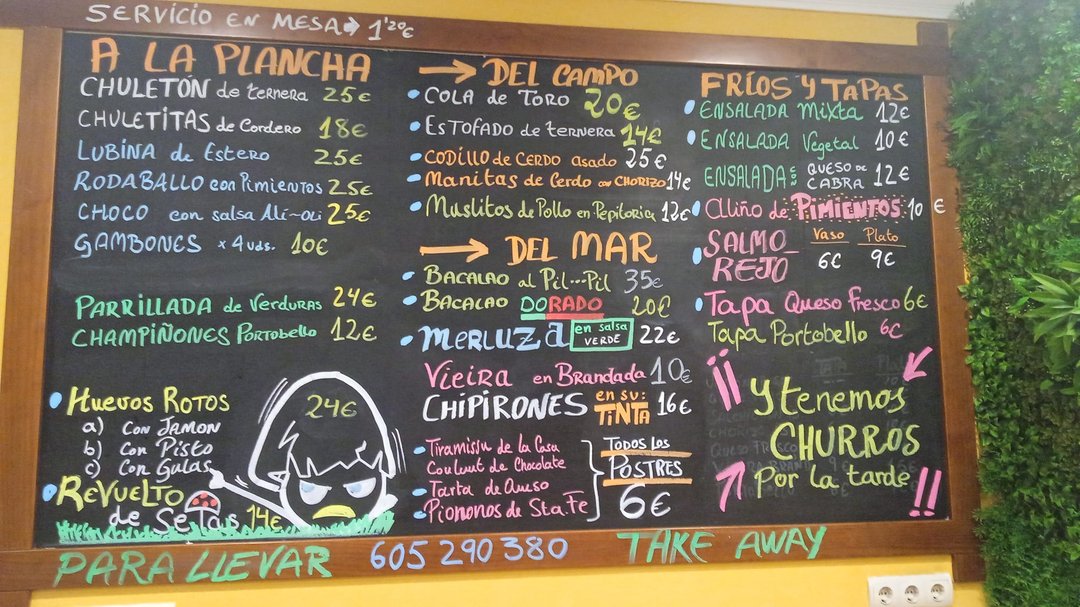 SERVICIO EN MESA → 1'20€
A LA PLANCHA
CHULETÓN de ternera 25€
CHULETITAS de Cordero 18€
LUBINA de Estero 25€
RODABALLO con Pimientos 25€
CHOCO con salsa Alí-oli 25€
GAMBONES x 4 uds. 10€
PARRILLADA de Verduras 24€
CHAMPIÑONES Portobello 12€
Huevos ROTOS 24€
a) con JAMON
b) con Pisto
c) con Gulas
REVUELTO
de SETAS 14€
→ DEL CAMPO
COLA de TORO 20€
ESTOFADO de ternera 14€
CODILLO de CERDO asado 25€
Manitas de Cerdo con CHORIZO 14€
Muslitos de Pollo en Pepitoria 12€
→ DEL MAR
BACALAO al Pil-Pil 35€
BACALAO DORADO 20€
MERLUZA en salsa VERDE 22€
Vieira en Brandada 10€
CHIPIRONES en su: TINTA 16€
Tiramissu de la Casa
Coulant de Chocolate
Tarta de Queso
Piononos de Sta Fe
TODOS LOS
POSTRES
6€
FRÍOS Y TAPAS
ENSALADA Mixta 12€
ENSALADA Vegetal 10€
ENSALADA QUESO DE CABRA 12€
Aliño de PIMIENTOS 10€
SALMOREJO
Vaso Plato
6€ 9€
TAPA Queso Fresco 6€
Tapa Portobello 6€
¡¡ Y tenemos
CHURROS
Por la tarde !!
PARA LLEVAR 605 290 380 TAKE AWAY